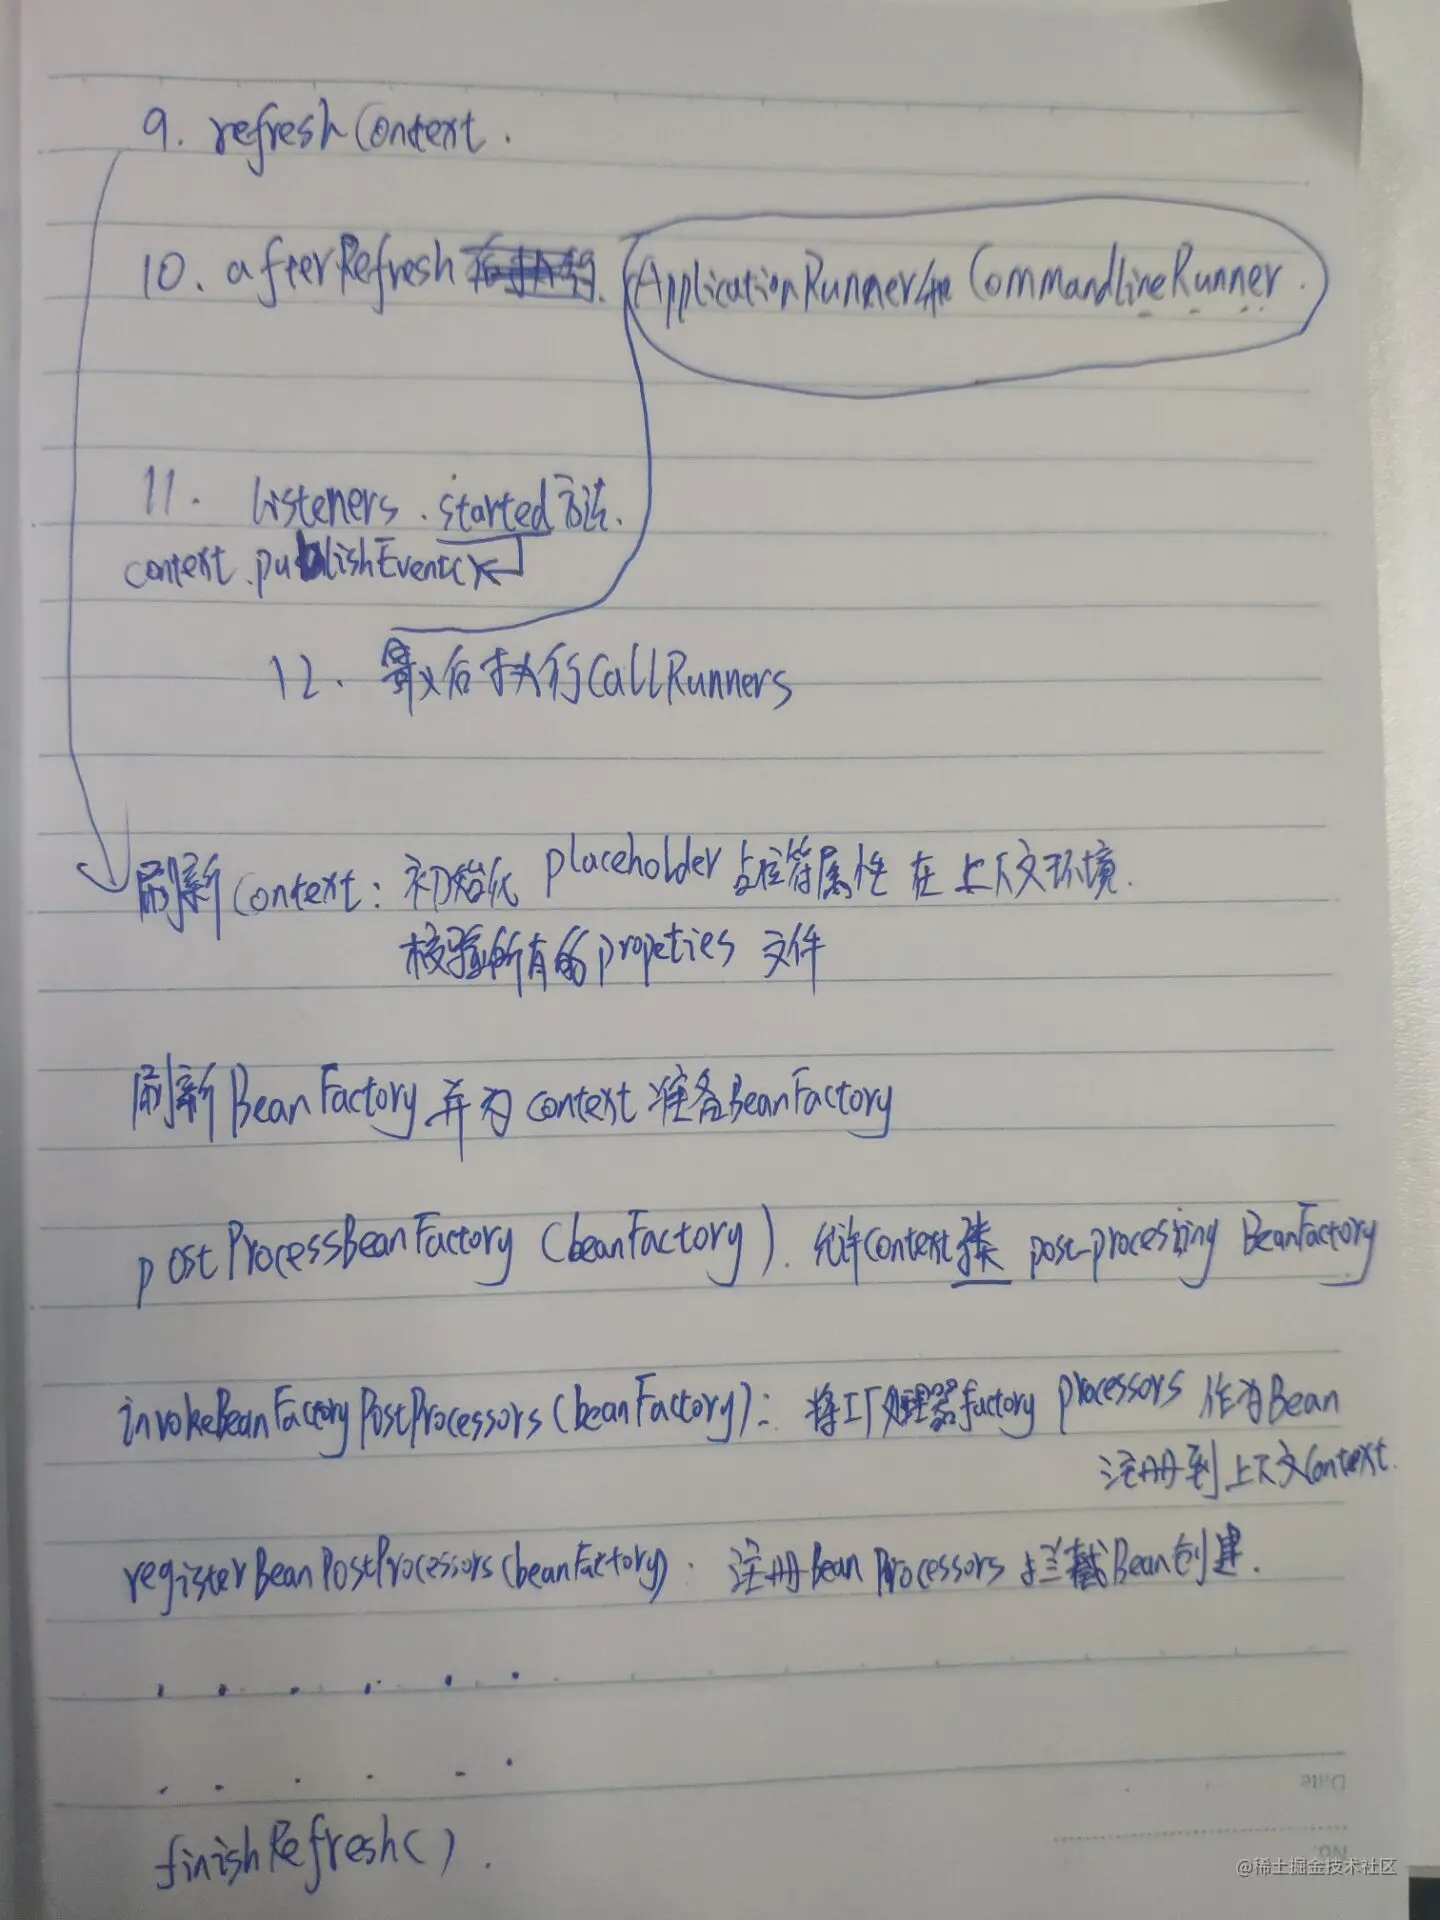 9. refreshContext.
10. afterRefresh ApplicationRunner和 CommandlineRunner.
11. listeners.started方法.
context.publishEvent()
12. 最后执行callRunners
刷新Context: 初始化 placeholder占位符属性 在上下文环境.
校验所有的propeties 文件
刷新BeanFactory 并为 context 准备BeanFactory
postProcessBeanFactory (beanFactory). 允许Context 子类 post-processing BeanFactory
invokeBeanFactoryPostProcessors (beanFactory): 将工厂处理器factory processors 作为Bean
注册到上下文Context.
registerBeanPostProcessors(beanFactory): 注册Bean Processors 拦截Bean创建.
. . . . . .
. . . . . .
finishRefresh().
Date
No.
@稀土掘金技术社区